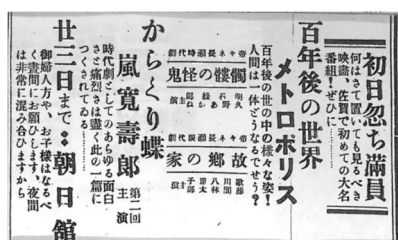 初日忽ち滿員
何はさて置いても見るべき
映畵、佐賀で初めての大名
番組！ぜひに……
百年後の世界
メトロポリス
百年後の世の中の様な姿！
人間は一体どうなるでせう？
帝キネ長瀬時代劇
髑髏の怪鬼
明石
帝キネ長瀬現代劇
故郷の家
からくり蝶
嵐寛壽郎
第二回
主演
時代劇としてのあらゆる面白
さと痛烈さは盡く此の一篇に
つくされてゐる…………
廿三日まで‥朝日館
御婦人方や、お子様はなるべ
く晝間にお願ひします、夜間
は非常に混み合ひますから